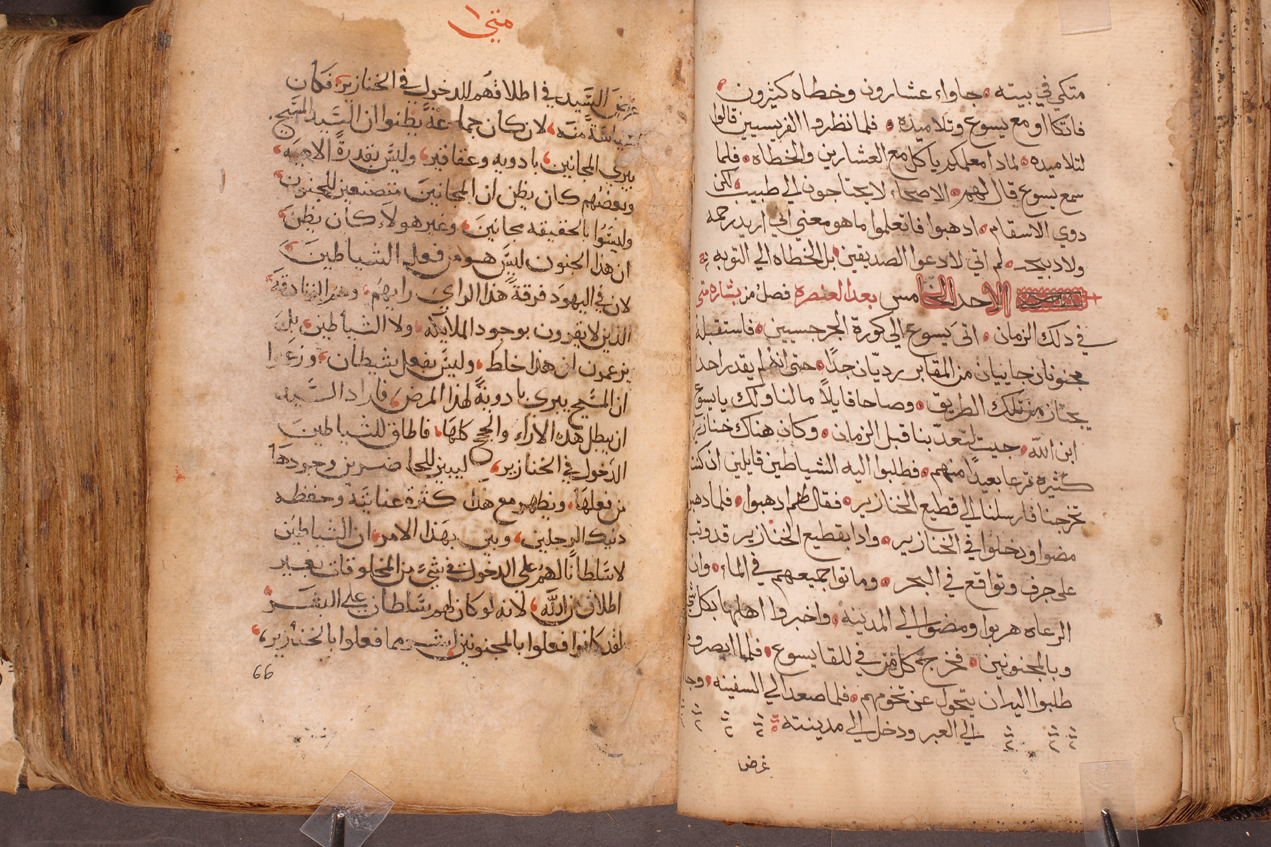 متكي في بيته جاوا عشارون وخطاه كثيرون
فاتكاو مع يسوع وتلاميذه فلما نظروا الفريسيين قالوا
لتلاميذه لماذا معلمكم ياكل مع العشارين والخطاه فلما
سمع يسوع قال لهم الاصحا لا يحتاجون الي طبيب لكن
ذوي الاسقام اذهبوا فاتعلموا ما هو معني اني اريد رحمه
ولا ذبيحه لم اتي لادعوا الصديقين بل الخطاه الي التوبه
الاحد الخامس بعد العنصره فصل من بشاره متي
في ذلك الزمان اتي يسوع الي كورة الجرجسيين فاستقبله
مجنونان جاييان من المقابر رديان جدًا حتى انه لم يقدر احد
يجتاز من تلك الطريق وصاحا قايلاً ما لنا ولك يا يسوع
ابن الله جيت لتعذبنا قبل الزمان وكان هناك خنازير
كثيره ترعا بعيدًا منهم فطلبوا اليه الشياطين قايلين ان كنت
تخرجنا فارسلنا الي قطيع الخنازير فقال لهم اذهبوا فلما
مضوا ودخلوا في الخنازير واذا بقطيع الخنازير قد وثب
علي جرف وتواقع في البحر وماتوا جميعهم في الماء وان
الرعاه هربوا ومضوا الي المدينه واخبروا اهلها بكل
وبالمجنونين فخرج كل من في للقا يسوع فلما ابصروه
طلبوا اليه ان يتحول عن تخومهم فلما صعد الي السفينه
الي العبر ودخل الي مدينته
غرض
متي ١
غرض السيد في اطلاقهم للدخول في الخنازير فكان
لان كان جماعة يظنوا ان السيد المسيح
يبري المجانين بادويه وعقاقير وليس بقدرة الاهيه
وبعضهم كان يظن ان المجانين متصنعين للجنون
وليسوا بالحقيقه مجانين وغير هولا كان يظن
ان هذا الجنون ليس هو من فعل الشياطين
لان في اليهود فرقة هذا الراي رايهم وهم الزنادقة
الذين لا يقرون بوجود الملايكه ولا الشياطين بل
يزعمون ان هذا خلط وليس بفعل شيطان وزعموا
ان المسيح يبري بادوية لهذا المرض فاراد السيد
ان يبطل هذه الاراء والحجج كلها فاطلق للشياطين
الدخول في الخنازير ليبين للحاضرين وجودها
من فعلها ويظهر مع هذا كثرة عنايته وحفظه
ذنيك الرجلين وبين بهذا الامر ان الشياطين
لا سلطانًا لهم على الدخول في شيء من المخلوقات بغير
اطلاق من الله لانه لو كان لهم سلطان على البشر
لقد كانوا فعلوا بالمجنونين اشر مما فعلوا بالخنازير
66